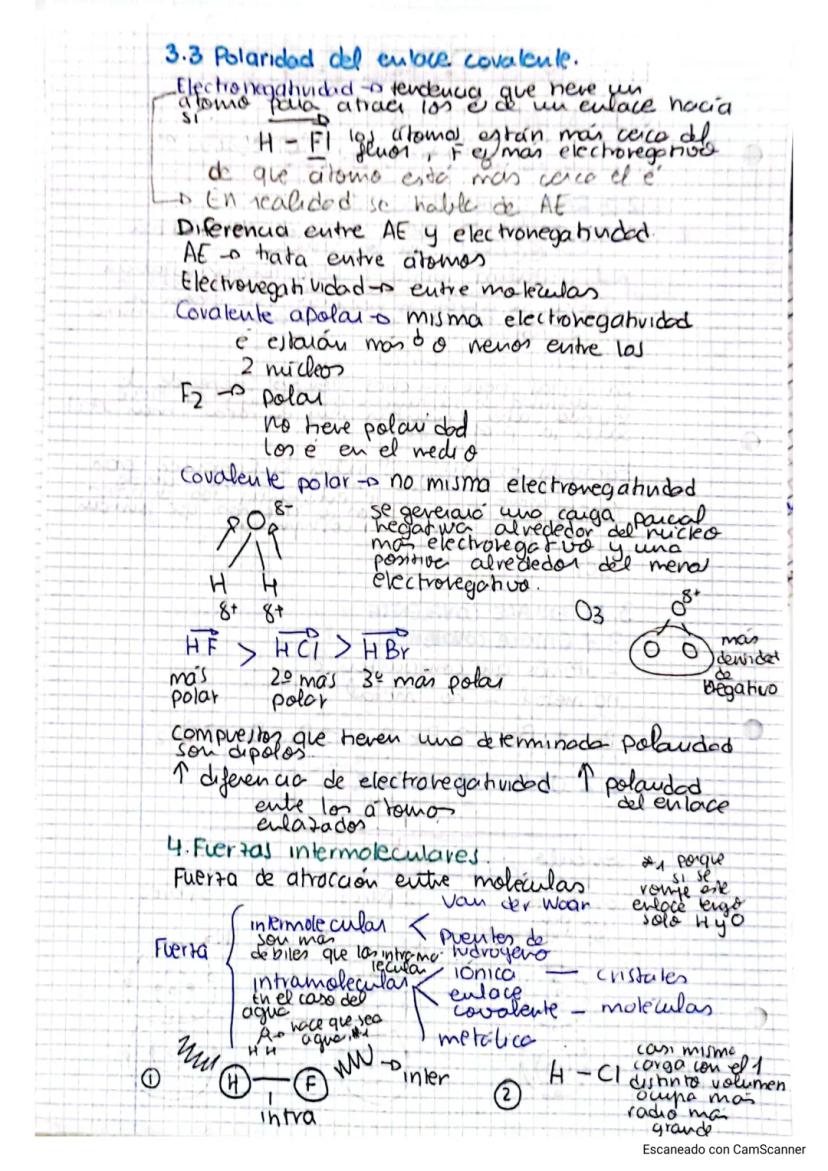 3.3 Polaridad del enlace covalente.
Electronegatividad → tendencia que tiene un
átomo para atraer los é de un enlace hacia
sí
H - F | los átomos están más cerca del
fluor, F es más electronegativo
de qué átomo está más cerca el é
→ En realidad se habla de AE
Diferencia entre AE y electronegatividad
AE → trata entre átomos
Electronegatividad → entre moléculas
Covalente apolar → misma electronegatividad
é estarán más o menos entre los
2 núcleos
F2 → polar
no tiene polaridad
los é en el medio
Covalente polar → no misma electronegatividad
O δ-
H H
δ+ δ+
se generará una carga parcial
negativa alrededor del núcleo
más electronegativo y una
positiva alrededor del menos
electronegativo.
O3
O δ+
O O
más
densidad
de
negativo
HF > HCl > HBr
más 2º más 3º más polar
polar polar
Compuestos que tienen una determinada polaridad
son dipolos.
↑ diferencia de electronegatividad ↑ polaridad
ente los átomos del enlace
enlazados
4. Fuerzas intermoleculares.
Fuerza de atracción entre moléculas
*1 porque
si se
rompe este
enlace tengo
solo H y O
Fuerza
intermolecular
son más
débiles que las intramolecular
Van der Waar
puentes de
hidrógeno
intramolecular
En el caso del
agua
hace que sea
agua *1
H H
iónica — cristales
enlace
covalente - moléculas
metálica
① H — F → inter
intra
② H - Cl
casi misma
carga con el 1
distinto volumen
ocupa más
radio más
grande
Escaneado con CamScanner